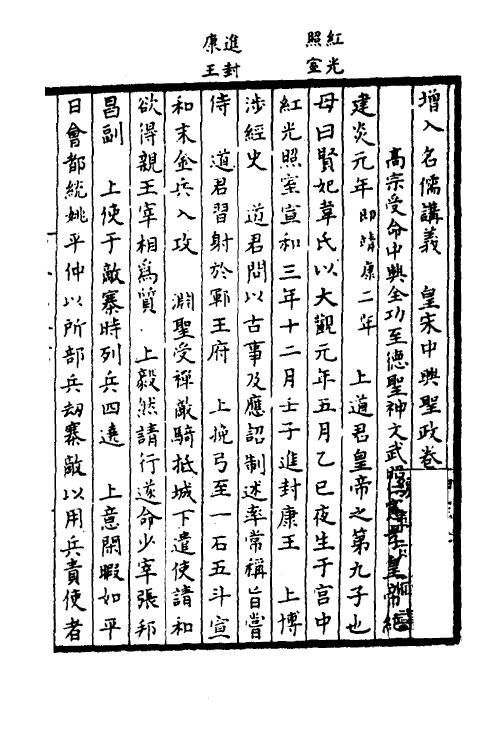 紅光
照室
進封
康王
增入名儒講義　皇宋中興聖政卷
高宗受命中興全功至德聖神文武昭仁憲孝皇帝紀
建炎元年即靖康二年　上道君皇帝之第九子也
母曰賢妃韋氏以大觀元年五月乙巳夜生于宮中
紅光照室宣和三年十二月壬子進封康王　上博
涉經史　道君問以古事及應詔制述率常稱旨嘗
侍　道君習射於鄆王府　上挽弓至一石五斗宣
和末金兵入攻　淵聖受禪敵騎抵城下遣使請和
欲得親王宰相爲質　上毅然請行遂命少宰張邦
昌副　上使于敵寨時列兵四遶　上意閑暇如平
日會都統姚平仲以所部兵劫寨敵以用兵責使者